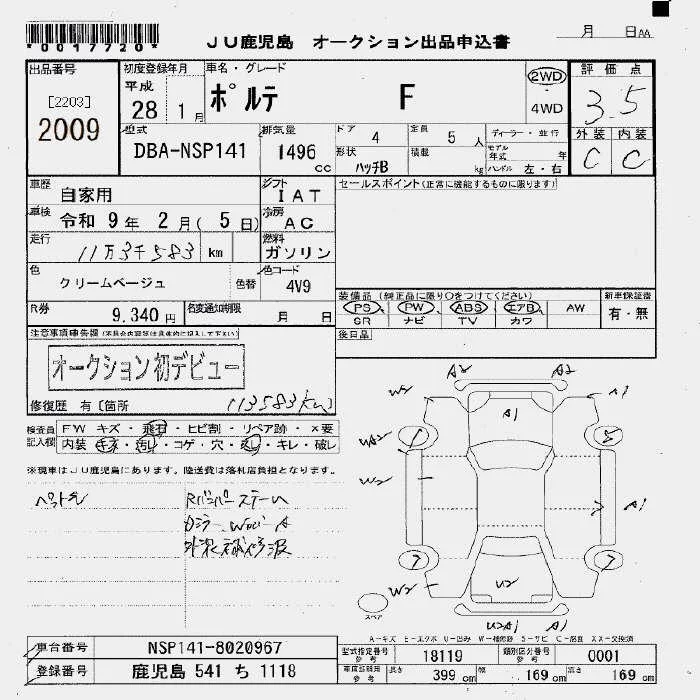 *0017720*
JU鹿児島 オークション出品申込書
月 日 AA
出品番号 [2203] 2009
初度登録年月 平成 28 1月
車名・グレード ポルテ F
2WD 4WD
評価点 3.5
外装 内装
C C
型式 DBA-NSP141
排気量 1496 cc
ドア 4 定員 5 人
形状 ハッチB 積載 kg
ディーラー・並行
モデル年式 年
ハンドル 左・右
車歴 自家用
シフト IAT
車検 令和 9年 2月( 5日)
冷房 AC
走行 11万3千583 km
燃料 ガソリン
色 クリームベージュ 色替
色コード 4V9
R券 9,340 円
名変通知期限 月 日
セールスポイント(正常に機能するものに限ります)
装備品(純正品に限り○をつけてください)
PS PW ABS エアB AW
SR ナビ TV カワ
新車保証書 有・無
後日品
オークション初デビュー
修復歴 有〔箇所
113583km
検査員記入欄
FW キズ・飛石・ヒビ割・リペア跡・×要
内装・キズ・汚れ・コゲ・穴・・キレ・破レ
※現車はJU鹿児島にあります。陸送費は落札店負担となります。
A2 A2
W2 A1
A1
UA2
W2 A1
W2 U2
U2A1 A1
スペア
A-キズ E-エクボ U-凹み W-補修跡 S-サビ C-腐食 XX-交換済
車台番号 NSP141-8020967
登録番号 鹿児島 541 ち 1118
型式指定番号 参考 18119
類別区分番号 参考 0001
長さ 399 cm 幅 169 cm 高さ 169 cm